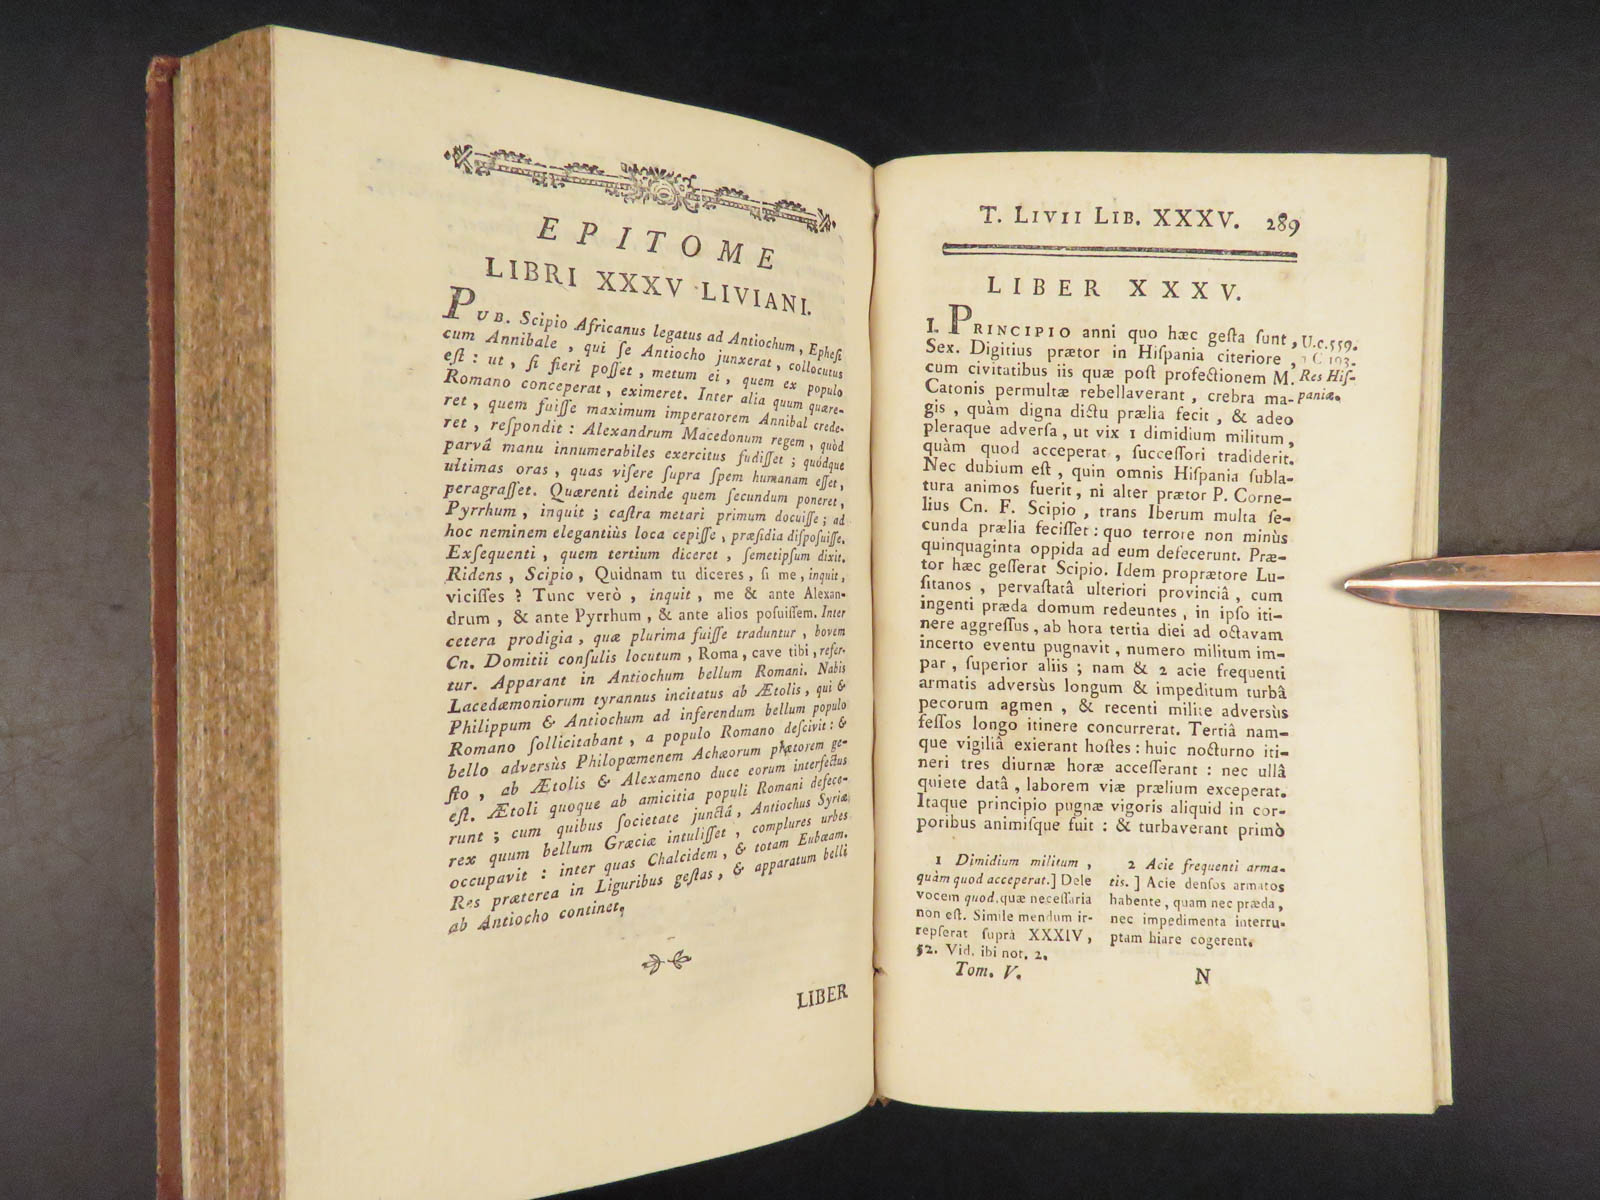 EPITOME
LIBRI XXXV LIVIANI.
PUB. Scipio Africanus legatus ad Antiochum, Ephesi
cum Annibale, qui ſe Antiocho junxerat, collocutus
eſt: ut, ſi fieri poſſet, metum ei, quem ex populo
Romano conceperat, eximeret. Inter alia quum quære-
ret, quem fuiſſe maximum imperatorem Annibal crede-
ret, reſpondit: Alexandrum Macedonum regem, quòd
parvâ manu innumerabiles exercitus fudiſſet; quódque
ultimas oras, quas viſere ſupra ſpem humanam eſſet,
peragraſſet. Quærenti deinde quem ſecundum poneret,
Pyrrhum, inquit; caſtra metari primum docuiſſe; ad
hoc neminem elegantiùs loca cepiſſe, præſidia diſpoſuiſſe.
Exſequenti, quem tertium diceret, ſemetipſum dixit.
Ridens, Scipio, Quidnam tu diceres, ſi me, inquit,
viciſſes? Tunc verò, inquit, me & ante Alexan-
drum, & ante Pyrrhum, & ante alios poſuiſſem. Inter
cetera prodigia, quæ plurima fuiſſe traduntur, bovem
Cn. Domitii conſulis locutum, Roma, cave tibi, refer-
tur. Apparant in Antiochum bellum Romani. Nabis
Lacedæmoniorum tyrannus incitatus ab Ætolis, qui &
Philippum & Antiochum ad inferendum bellum populo
Romano ſollicitabant, a populo Romano deſcivit: &
bello adversùs Philopœmenem Achæorum prætorem ge-
ſto, ab Ætolis & Alexameno duce eorum interfectus
eſt. Ætoli quoque ab amicitia populi Romani defece-
runt; cum quibus ſocietate junctâ, Antiochus Syriæ
rex quum bellum Græciæ intuliſſet, complures urbes
occupavit: inter quas Chalcidem, & totam Eubœam.
Res præterea in Liguribus geſtas, & apparatum belli
ab Antiocho continet.
LIBER
T. LIVII LIB. XXXV. 289
LIBER XXXV.
I. PRINCIPIO anni quo hæc geſta ſunt, U.c.559.
Sex. Digitius prætor in Hiſpania citeriore, C 193.
cum civitatibus iis quæ poſt profectionem M. Res Hiſ-
Catonis permultæ rebellaverant, crebra ma- paniæ.
gis, quàm digna dictu prælia fecit, & adeo
pleraque adverſa, ut vix 1 dimidium militum,
quàm quod acceperat, ſucceſſori tradiderit.
Nec dubium eſt, quin omnis Hiſpania ſubla-
tura animos fuerit, ni alter prætor P. Corne-
lius Cn. F. Scipio, trans Iberum multa ſe-
cunda prælia feciſſet: quo terrore non minùs
quinquaginta oppida ad eum defecerunt. Præ-
tor hæc geſſerat Scipio. Idem proprætore Lu-
ſitanos, pervaſtatâ ulteriori provinciâ, cum
ingenti præda domum redeuntes, in ipſo iti-
nere aggreſſus, ab hora tertia diei ad octavam
incerto eventu pugnavit, numero militum im-
par, ſuperior aliis; nam & 2 acie frequenti
armatis adversùs longum & impeditum turbâ
pecorum agmen, & recenti milite adversùs
feſſos longo itinere concurrerat. Tertiâ nam-
que vigiliâ exierant hoſtes: huic nocturno iti-
neri tres diurnæ horæ acceſſerant: nec ullâ
quiete datâ, laborem viæ prælium exceperat.
Itaque principio pugnæ vigoris aliquid in cor-
poribus animiſque fuit: & turbaverant primò
1 Dimidium militum,
quàm quod acceperat.] Dele
vocem quod, quæ neceſſaria
non eſt. Simile mendum ir-
repſerat ſuprà XXXIV,
52. Vid. ibi not. 2.
2 Acie frequenti arma-
tis.] Acie denſos armatos
habente, quam nec præda,
nec impedimenta interru-
ptam hiare cogerent.
Tom. V.
N